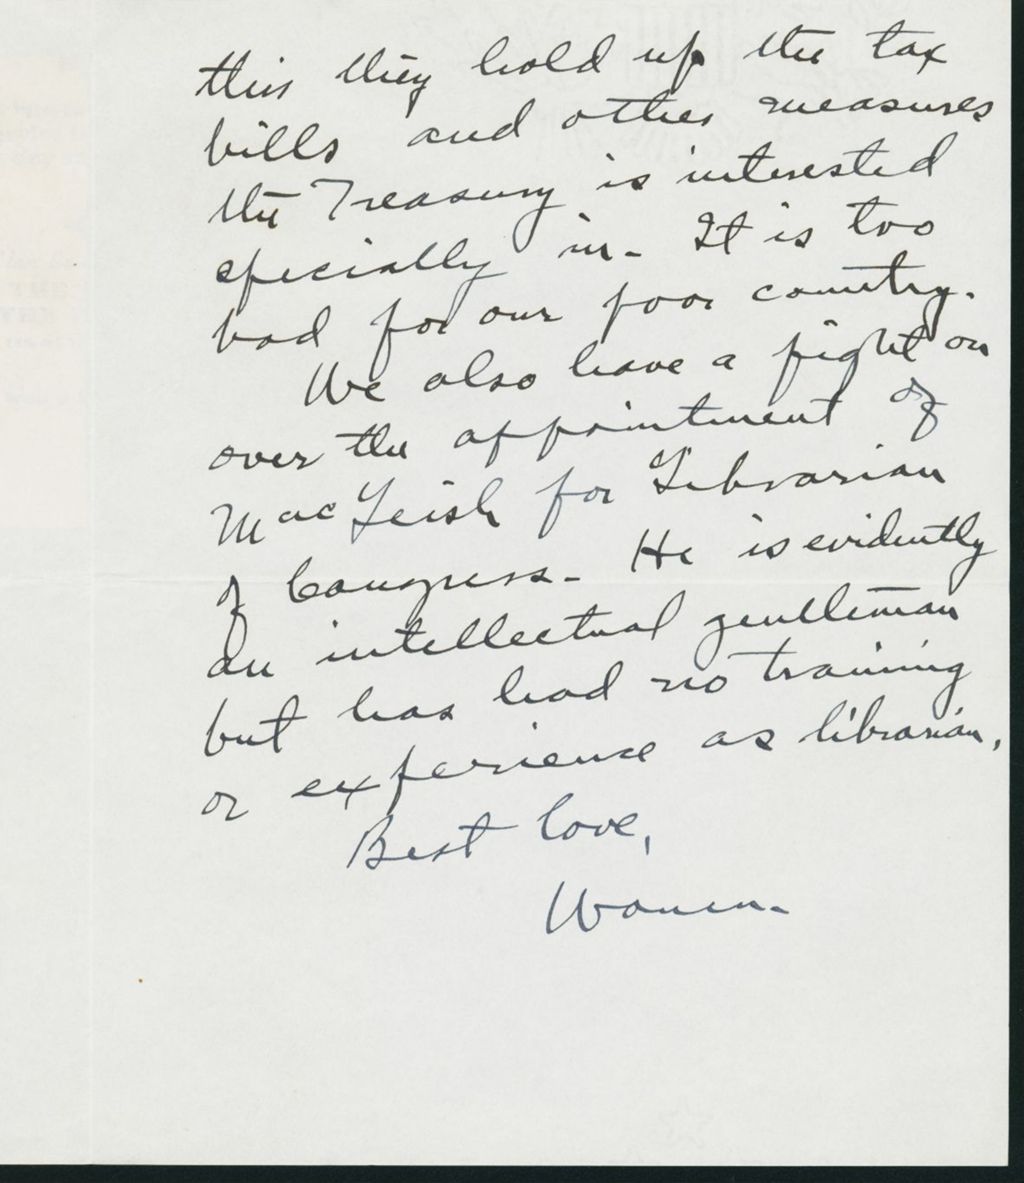 this they hold up the tax
bills and other measures
the Treasury is interested
specially in. It is too
bad for our poor country.
We also have a fight on
over the appointment of
MacLeish for Librarian
of Congress. He is evidently
an intellectual gentleman
but has had no training
or experience as librarian.
Best love,
Warren.